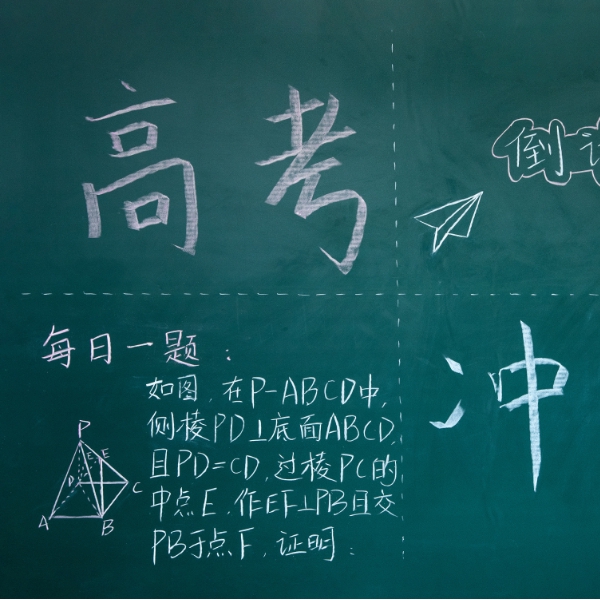 高考
倒计
冲
每日一题：
如图，在P-ABCD中，
侧棱PD⊥底面ABCD，
且PD=CD，过棱PC的
中点E，作EF⊥PB且交
PB于点F，证明：
P
E
E
D
C
A
B